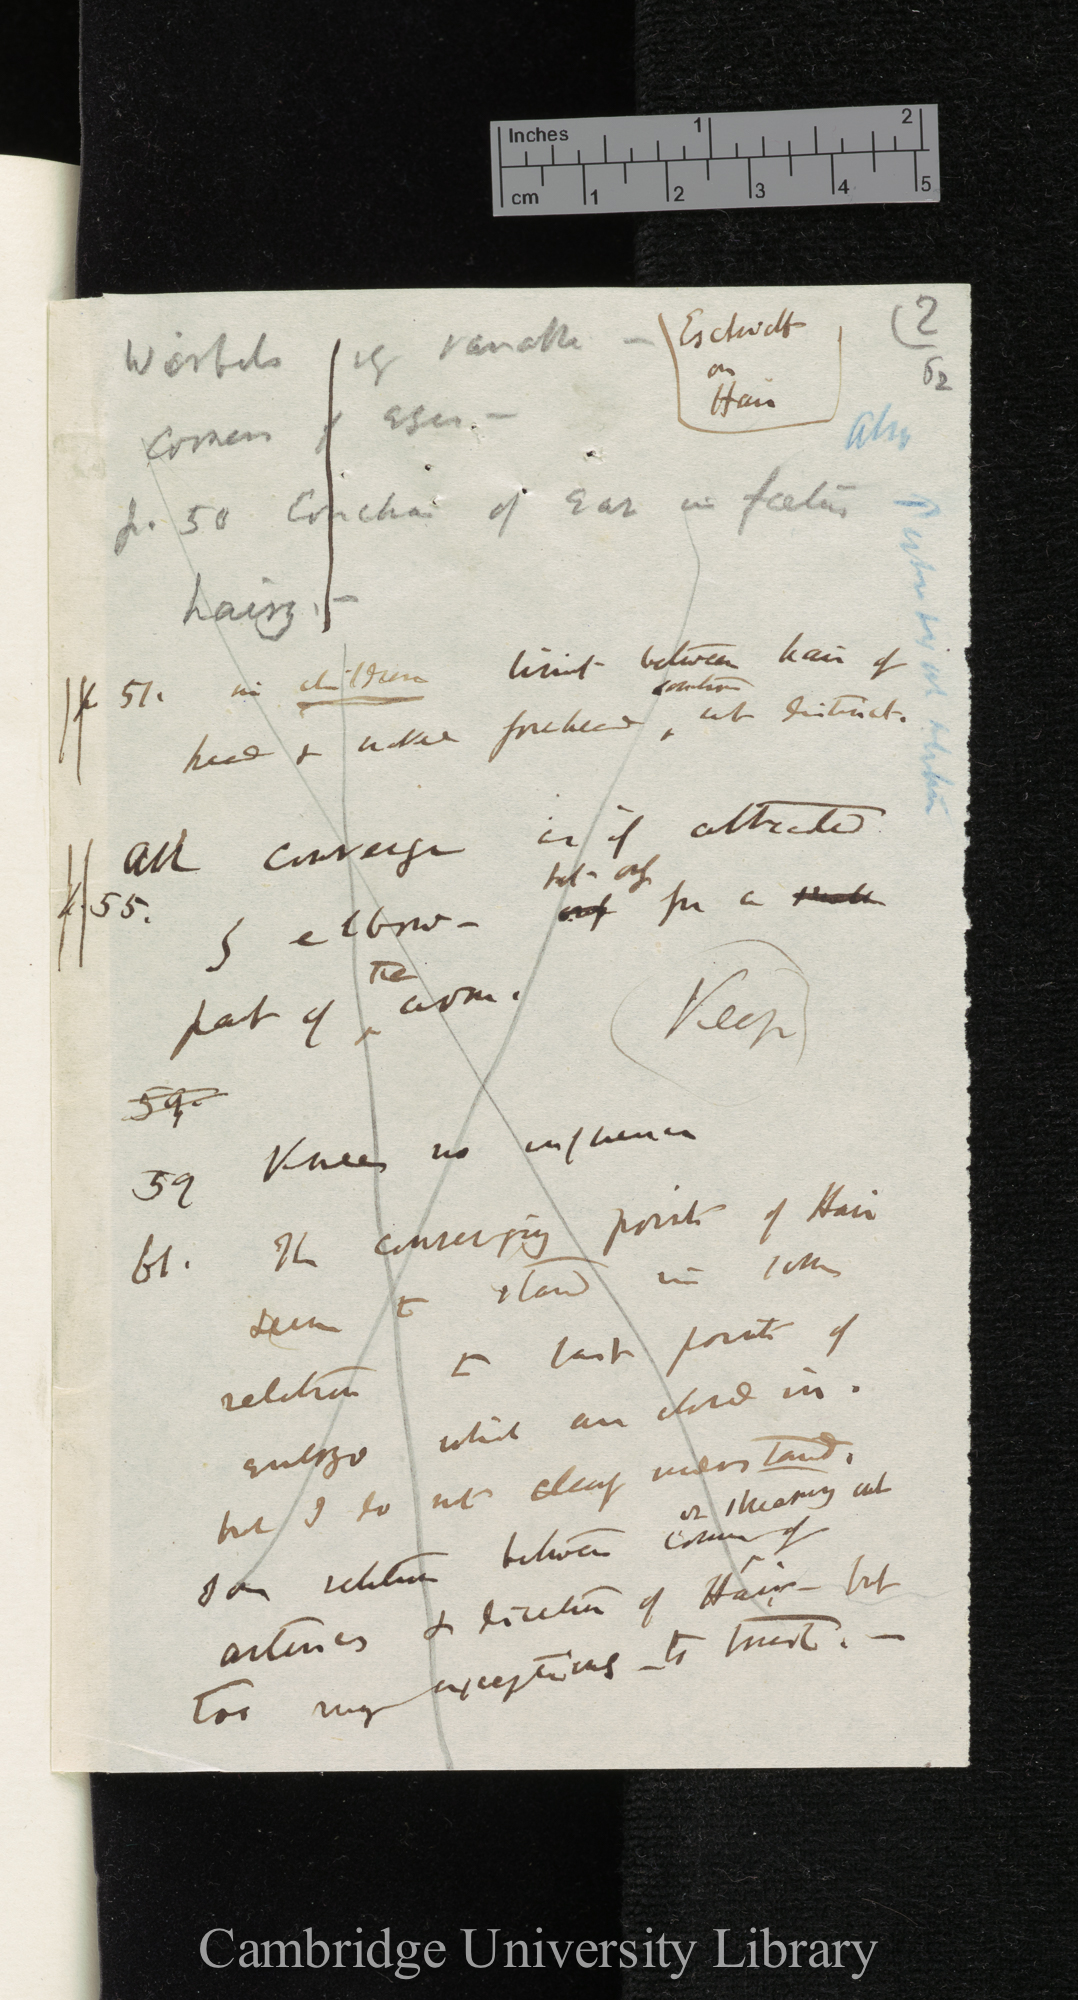 Inches 1 2
cm 1 2 3 4 5
(2
62
Eschricht
on
Hair
Wirbels vy variable –
corners of eyes. –
also
p. 50 Conchai of Ear in foetus
hairy. –
p 51. in children limit between hair of
head & naked forehead, sometimes not distinct.
All converge as if attracted
p. 55.
to elbow – but only only for a small
part of the arm.
Keep
59.
59 Knees no influence
61. The converging points of Hair
seem to stand in some
relation to last points of
embryo which are closed in.
but I do not clearly understand.
Some relation between course of or skeasing out
arteries & direction of Hair – but
too many exceptions – to trust. –
Cambridge University Library